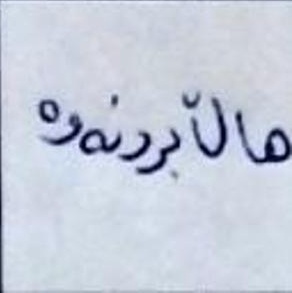 هاڵابردنەوە